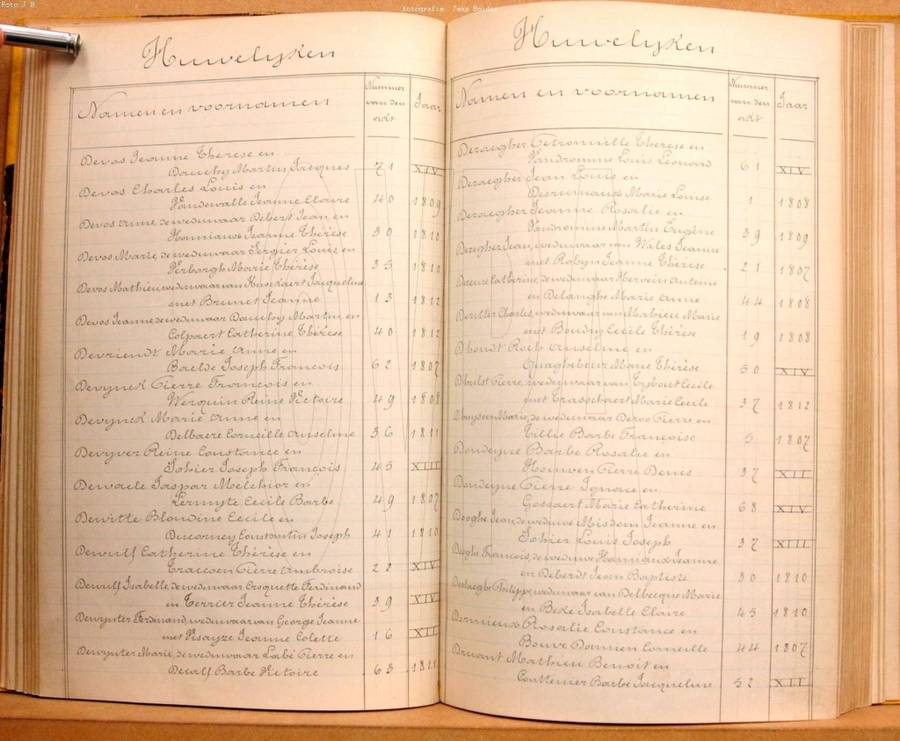 Foto J.B.
Fotografie Jens
Huwelijken
Namen en voornamen
Nummer van den akt
Jaar
Devos Jeanne Thérèse en
Douchy Martin Jacques 71 XIV
Devos Charles Louis en
Vandewalle Jeanne Claire 40 1809
Devos Anne, de weduwaar Debert Jean, en
Hanniause Jeanne Thérèse 30 1810
Devos Marie, de weduwaar Sergier Louis en
Verborgh Marie Thérèse 35 1810
Devos Mathieu, weduwaar van Jacqueline
met Brunet Jeanne 13 1812
Devos Jeanne, de weduwaar Douchy Martin, en
Colpaert Catherine Thérèse 40 1812
Devriendt Marie Anne en
Baelde Joseph François 62 1807
Devynck Pierre François en
Werquin Reine Victoire 49 1808
Devynck Marie Anne en
Delbaere Corneille Anselme 36 1811
Devyver Reine Constance en
Sohier Joseph François 45 XIII
Dewaele Jaspar Melchior en
Lermyte Cecile Barbe 49 1807
Dewitte Blondine Cecile en
Ducorney Constantin Joseph 41 1810
Dewulf Catherine Thérèse en
Traccoen Pierre Ambroise 22 XIV
Dewulf Isabelle, de weduwaar Crequette Ferdinand
en Terrier Jeanne Thérèse 39 XIV
Dewynter Ferdinand, weduwaar van George Jeanne
met Pisayre Jeanne Colette 16 XII
Dewynter Marie, de weduwaar Labé Pierre en
Dewulf Barbe Victoire 63
Huwelijken
Namen en voornamen
Nummer van den akt
Jaar
Dezaegher Petronnille Thérèse en
Vandromme Louis Léonard 61 XIV
Dezaegher Jean Louis en
Desrumaude Marie Louise 1 1808
Dezaegher Jeanne Rosalie en
Vandromme Martin Eugène 39 1809
Dezegher Jean, weduwaar van Wales Jeanne
met Robyn Jeanne Thérèse 21 1807
Catherine, de weduwaar Antoine
en Delanghe Marie Anne 44 1808
Charles, weduwaar van Mathieu Marie
met Boudry Cecile Thérèse 19 1808
Dhondt Roch Anselme en
Quaghebeur Marie Thérèse 50 XIV
Dhulst Pierre, weduwaar van Tybout Cecile
met Crasschaert Marie Cecile 37 1812
Marie, de weduwaar Devos Pierre en
Tillie Barbe Françoise 5 1807
Dondeyne Barbe Rosalie en
Houwen Pierre Denis 37 XII
Dondeyne Pierre Ignace en
Gossaert Marie Catherine 68 XIV
Dooghe Jean, de weduwe Misdom Jeanne en
Sohier Louis Joseph 37 XIII
Dooghe François, de weduwe Hanniause Jeanne
en Deberdt Jean Baptiste 30 1810
Philippe, weduwaar van Delbecque Marie
en Beke Isabelle Claire 45 1810
Dormiense Rosalie Constance en
Bouve Damien Corneille 44 1807
Druant Mathieu Benoit en
Couttenier Barbe Jacqueline 52 XII